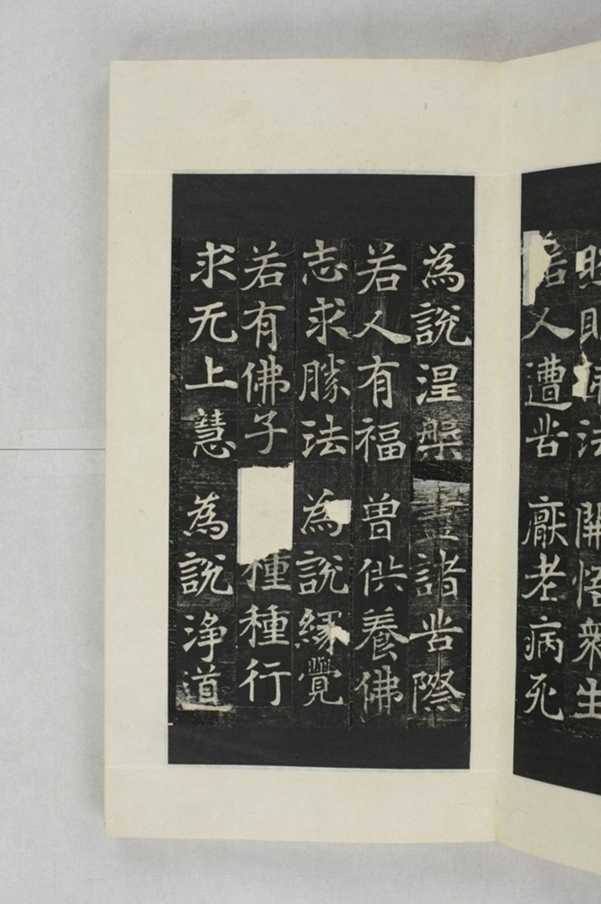 照明佛法 開悟衆生
若人遭苦 厭老病死
為說涅槃 盡諸苦際
若人有福 曾供養佛
志求勝法 為說緣覺
若有佛子 種種行
求无上慧 為說淨道